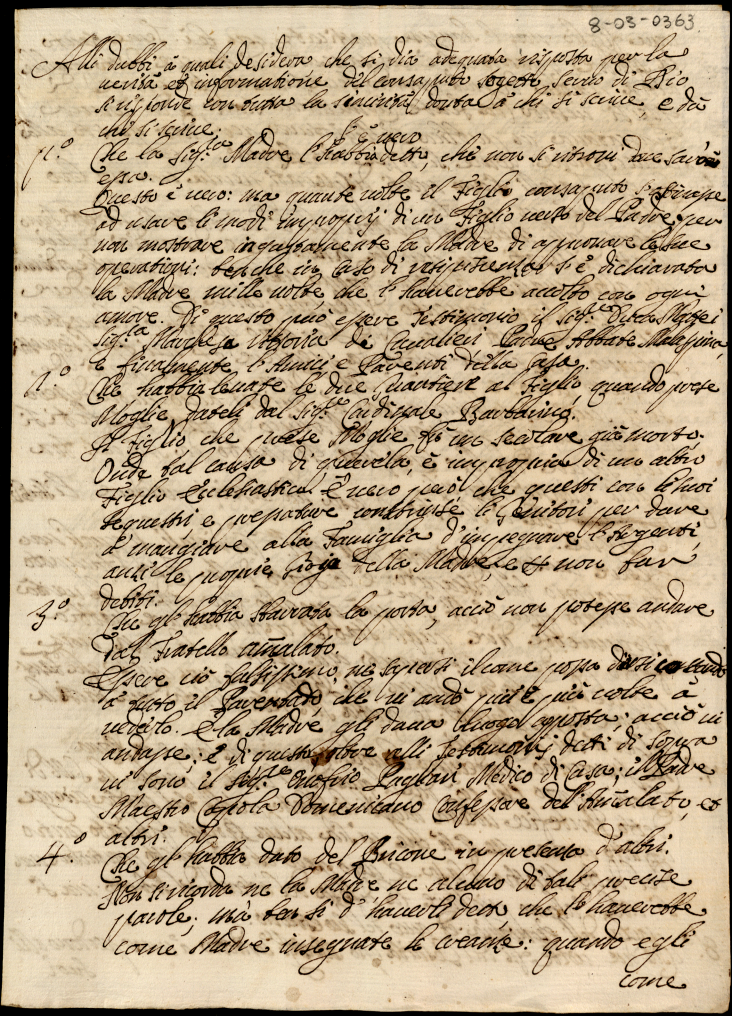 8-03-0363
Alli dubbi à quali desidera che si dia adequata risposta per la
verità et informatione del consaputo sogetto servo di Dio
si risponde con tutta la sincerità douta à chi si scrive, e da
chi si scrive.
p.º Che la Sig.ra Madre l'habbia detto, che non si ritrovi dove sarà
È vero
essa.
Questo è vero: ma quante volte il Figlio consaputo
ad usare li modi improprij di un Figlio verso del Padre, per
non mostrare ingiustamente la Madre di approvare le sue
operationi: benche in caso di si è dichiarata
la Madre mille volte che l'haverebbe accolto con ogni
amore. Di questo può essere testimonio il Sig.r Duca Mattei
Sig.ra Marchesa Vittoria de Cavalieri Padre Abbate Malaspina,
e finalmente l'Amici e Parenti della Casa.
Che habbia levate le due al Figlio, quando prese
Moglie dateli dal Sig.re Cardinale Barbarino.
Il Figlio che prese Moglie fù un secolare già morto.
Onde tal causa di querela è impropria di un altro
Figlio Ecclesiastico. È vero però che questi con li suoi
sequestri e constrinse li Genitori per dare
à mangiare alla Famiglia d'impegnare l'Argenti,
anzi le proprie gioje della Madre, et non far
debiti.
3.º Che gl'habbia sbarrata la porta, acciò non potesse andare
dal Fratello amalato.
Essere ciò falsissimo, ne sapersi il come possa dirsi
à tutto il Parentado che vi andò più e più volte à
vederlo. E la Madre gli dava luogo aposta, acciò vi
andasse; e di questo oltre alli Testimonij detti di sopra
vi sono il Sig.re Onofrio Pagliari Medico di Casa; il Padre
Maestro Domenicano Confessore dell'Amalato, et
altri.
4.º Che gl'habbia dato del Bricone in presenza d'altri.
Non si ricorda ne la Madre ne alcuno di tali precise
parole; mà ben si d'haverli detto che l'haverebbe
come Madre insegnate le creanze: quando egli
come